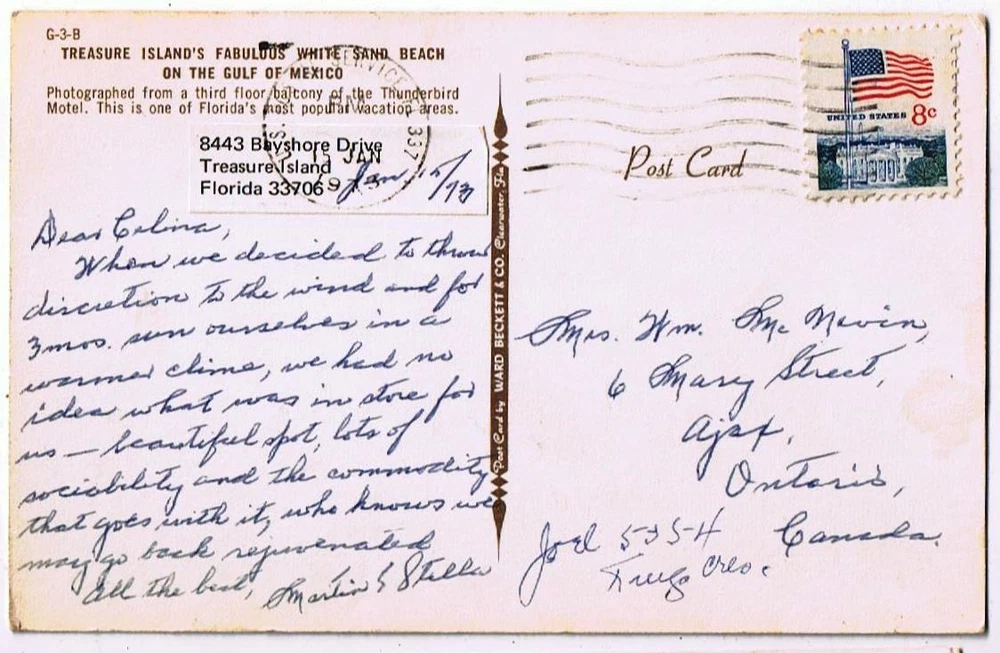 G-3-B
TREASURE ISLAND'S FABULOUS WHITE SAND BEACH
ON THE GULF OF MEXICO
Photographed from a third floor balcony of the Thunderbird
Motel. This is one of Florida's most popular vacation areas.
8443 Bayshore Drive
Treasure Island
Florida 33706
Jan 15/73
SERVICE
337
U.S.
15 JAN
Dear Celina,
When we decided to throw
discretion to the wind and for
3 mos. sun ourselves in a
warmer clime, we had no
idea what was in store for
us — beautiful spot, lots of
sociability and the commodity
that goes with it, who knows we
may go back rejuvenated
All the best, Martin & Stella
Post Card by WARD BECKETT & CO. Clearwater, Fla.
UNITED STATES 8c
Post Card
Mrs. Wm. Mc Nevin,
6 Mary Street,
Ajax,
Ontario,
Canada.
5354